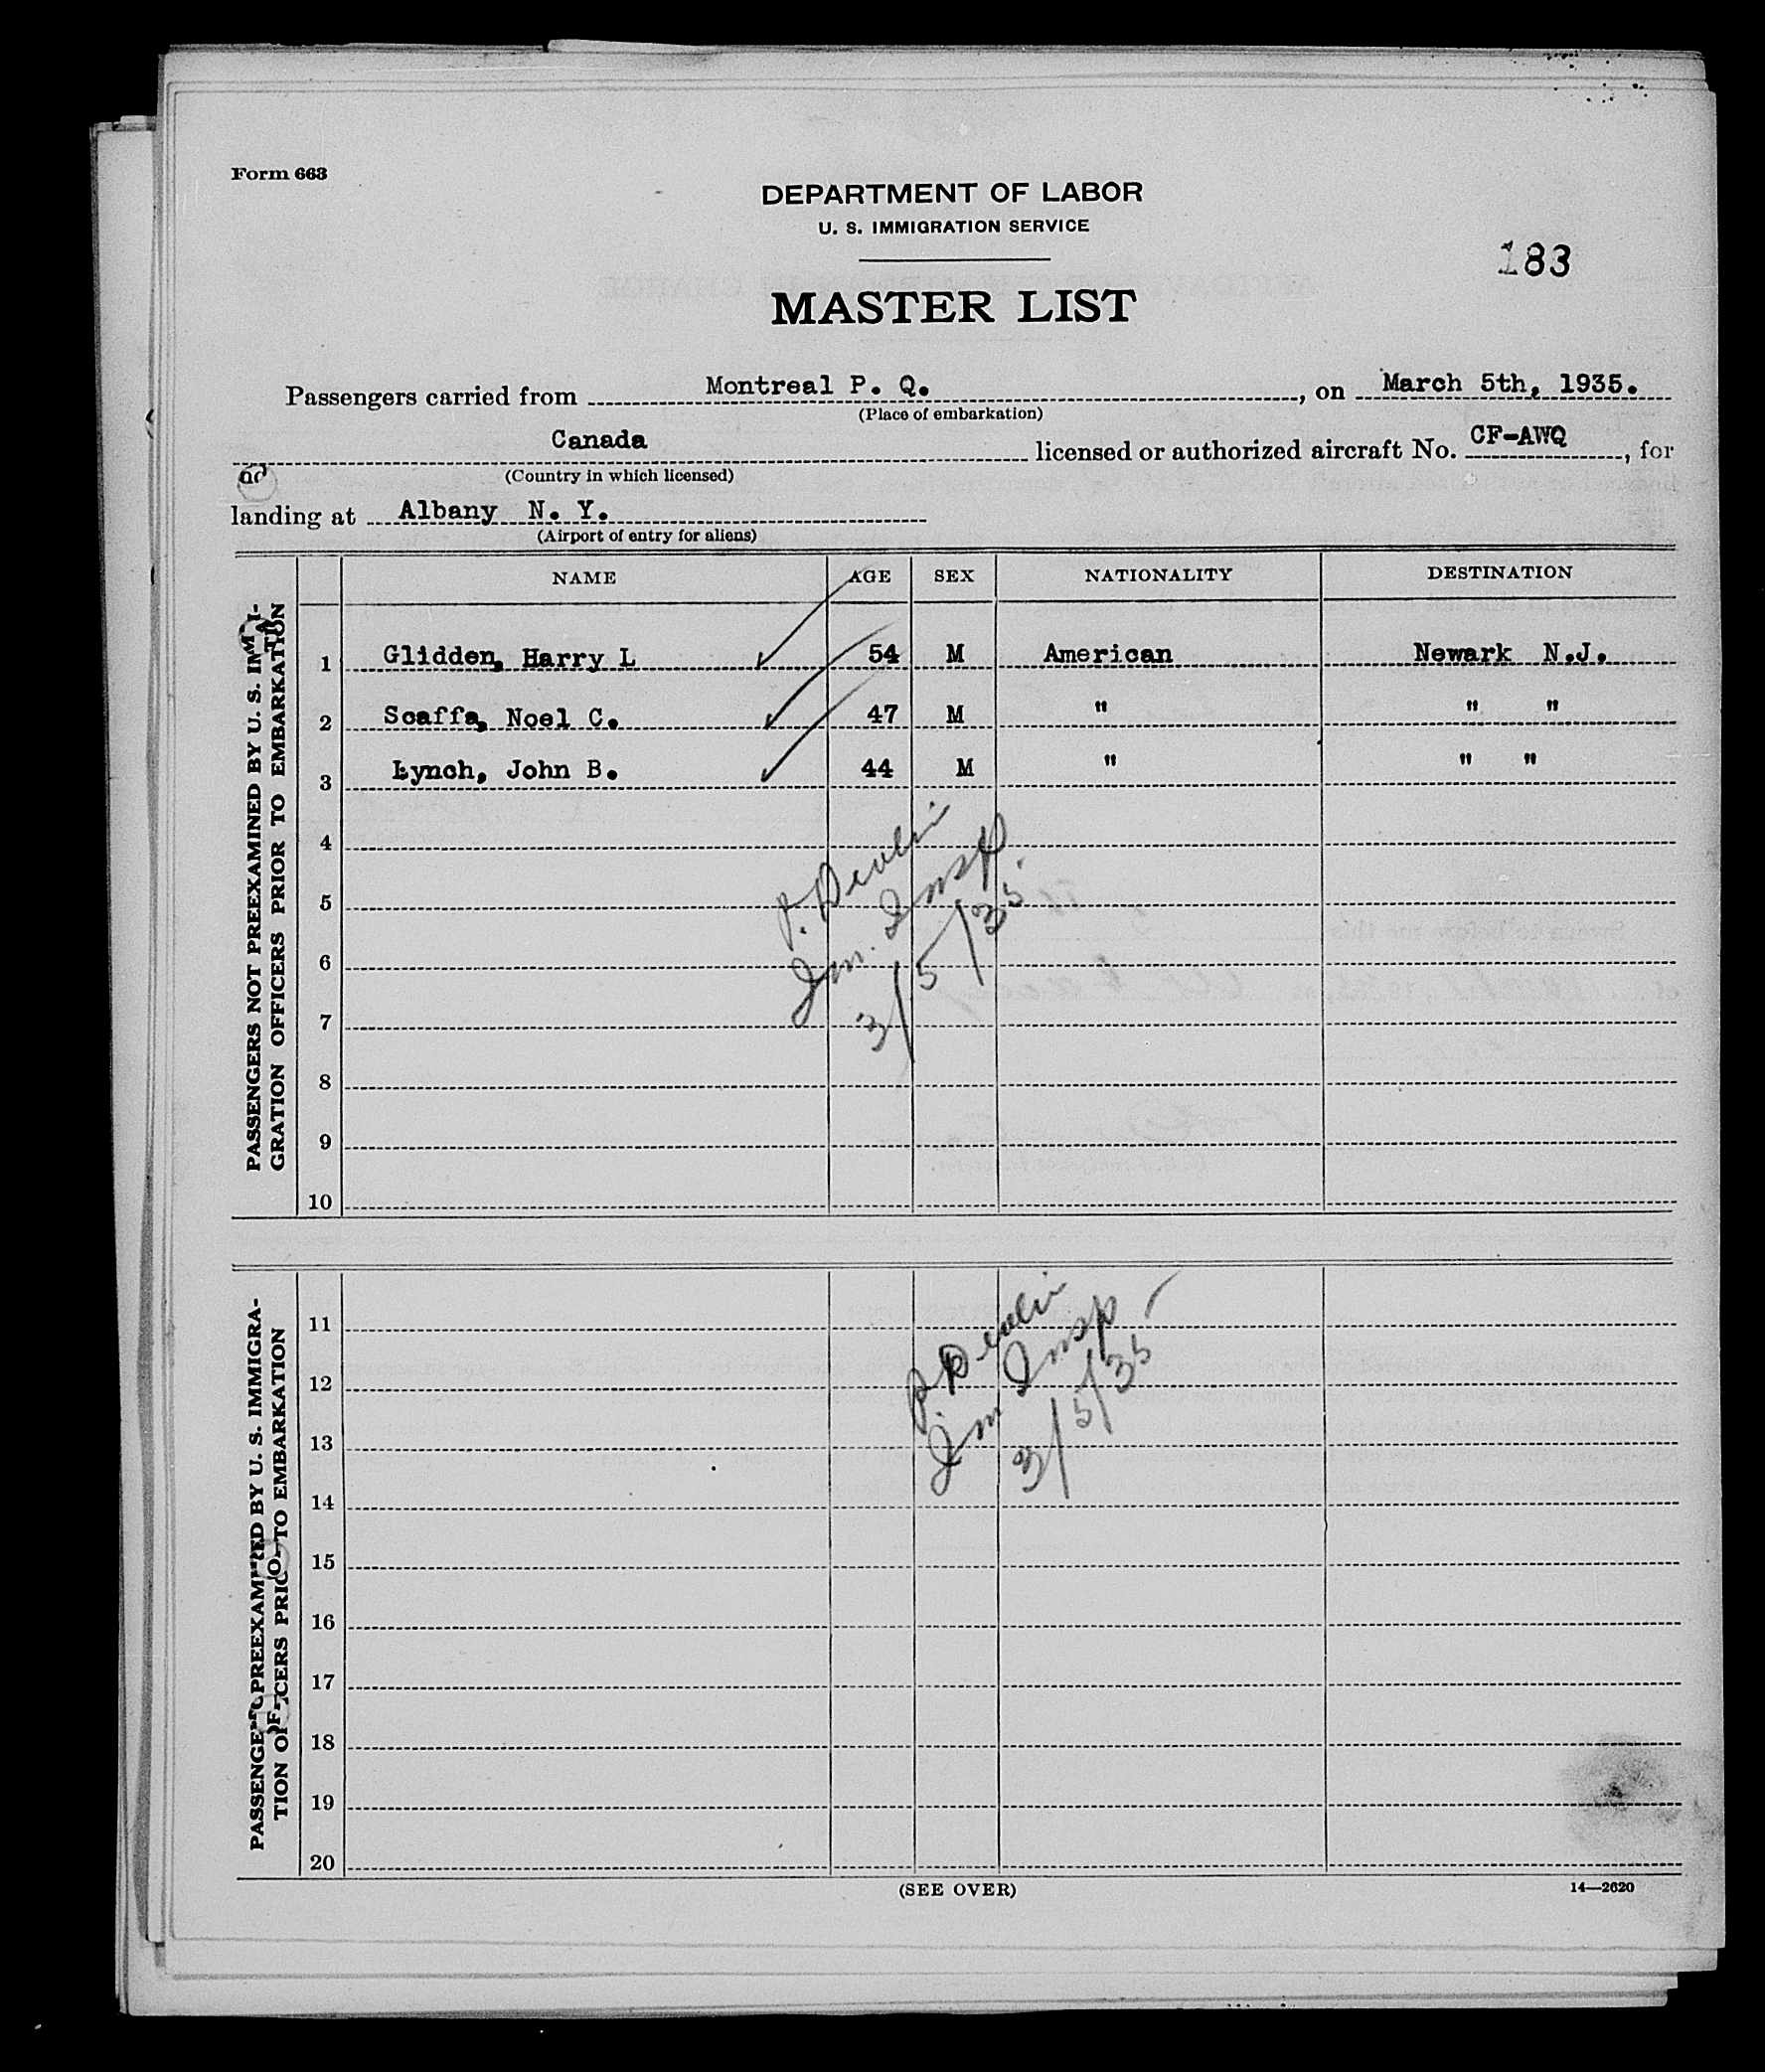 Form 663
DEPARTMENT OF LABOR
U. S. IMMIGRATION SERVICE
183
MASTER LIST
Passengers carried from Montreal P. Q., on March 5th, 1935.
(Place of embarkation)
Canada licensed or authorized aircraft No. CF-AWQ, for
(Country in which licensed)
landing at Albany N. Y.
(Airport of entry for aliens)
NAME AGE SEX NATIONALITY DESTINATION
PASSENGERS NOT PREEXAMINED BY U. S. IMMI-
GRATION OFFICERS PRIOR TO EMBARKATION
1 Glidden, Harry L 54 M American Newark N.J.
2 Scaffa, Noel C. 47 M " " "
3 Lynch, John B. 44 M " " "
4
5
6
7
8
9
10
P. Devlin
Im. Insp
3/5/35.
PASSENGERS PREEXAMINED BY U. S. IMMIGRA-
TION OFFICERS PRIOR TO EMBARKATION
11
12
13
14
15
16
17
18
19
20
P. Devlin
Im Insp
3/5/35
(SEE OVER)
14—2620